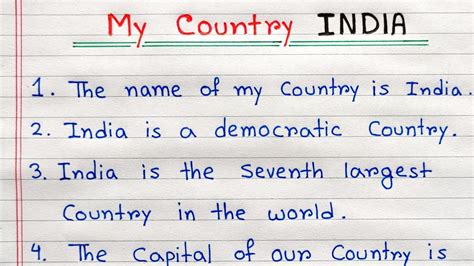 My Country INDIA
1. The name of my Country is India.
2. India is a democratic Country.
3. India is the Seventh largest
Country in the world.
4. The Capital of our Country is